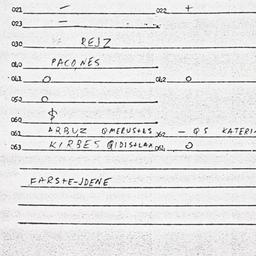 021 — 022 +
023 —
030 REJZ
040 PACONES
041 O 042 O
050 O
060
061 ARBUZ 062 — QS KATERI
063 KIRBES 064 O
FARSTE-JDENE